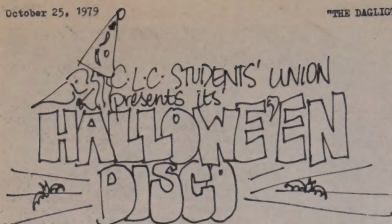 October 25, 1979 "THE DAGLIG
C·L·C· STUDENTS' UNION
presents its
HALLOWE'EN
DISCO